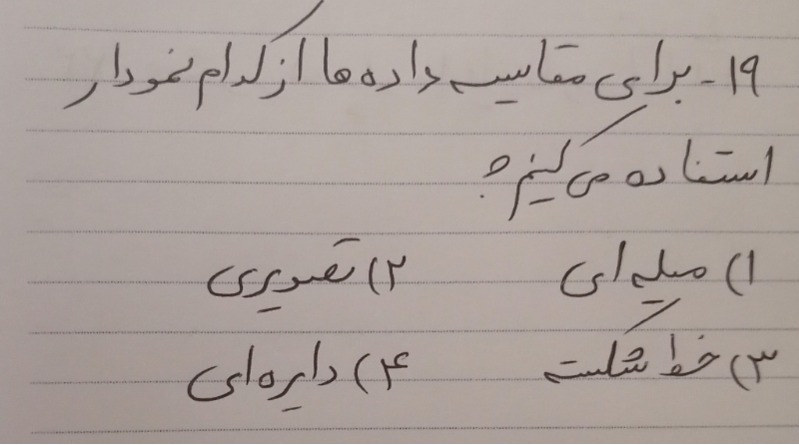 ۱۹- برای مقایسه داده ها از کدام نمودار
استفاده می کنیم؟
۱) میله ای ۲) تصویری
۳) خط شکسته ۴) دایره ای